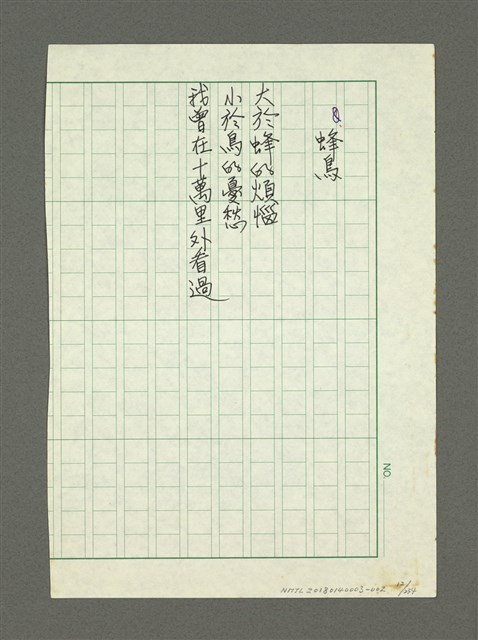 蜂鳥
大於蜂的煩惱
小於鳥的憂愁
我曾在十萬里外看過
NO.
NMTL20180140003-092